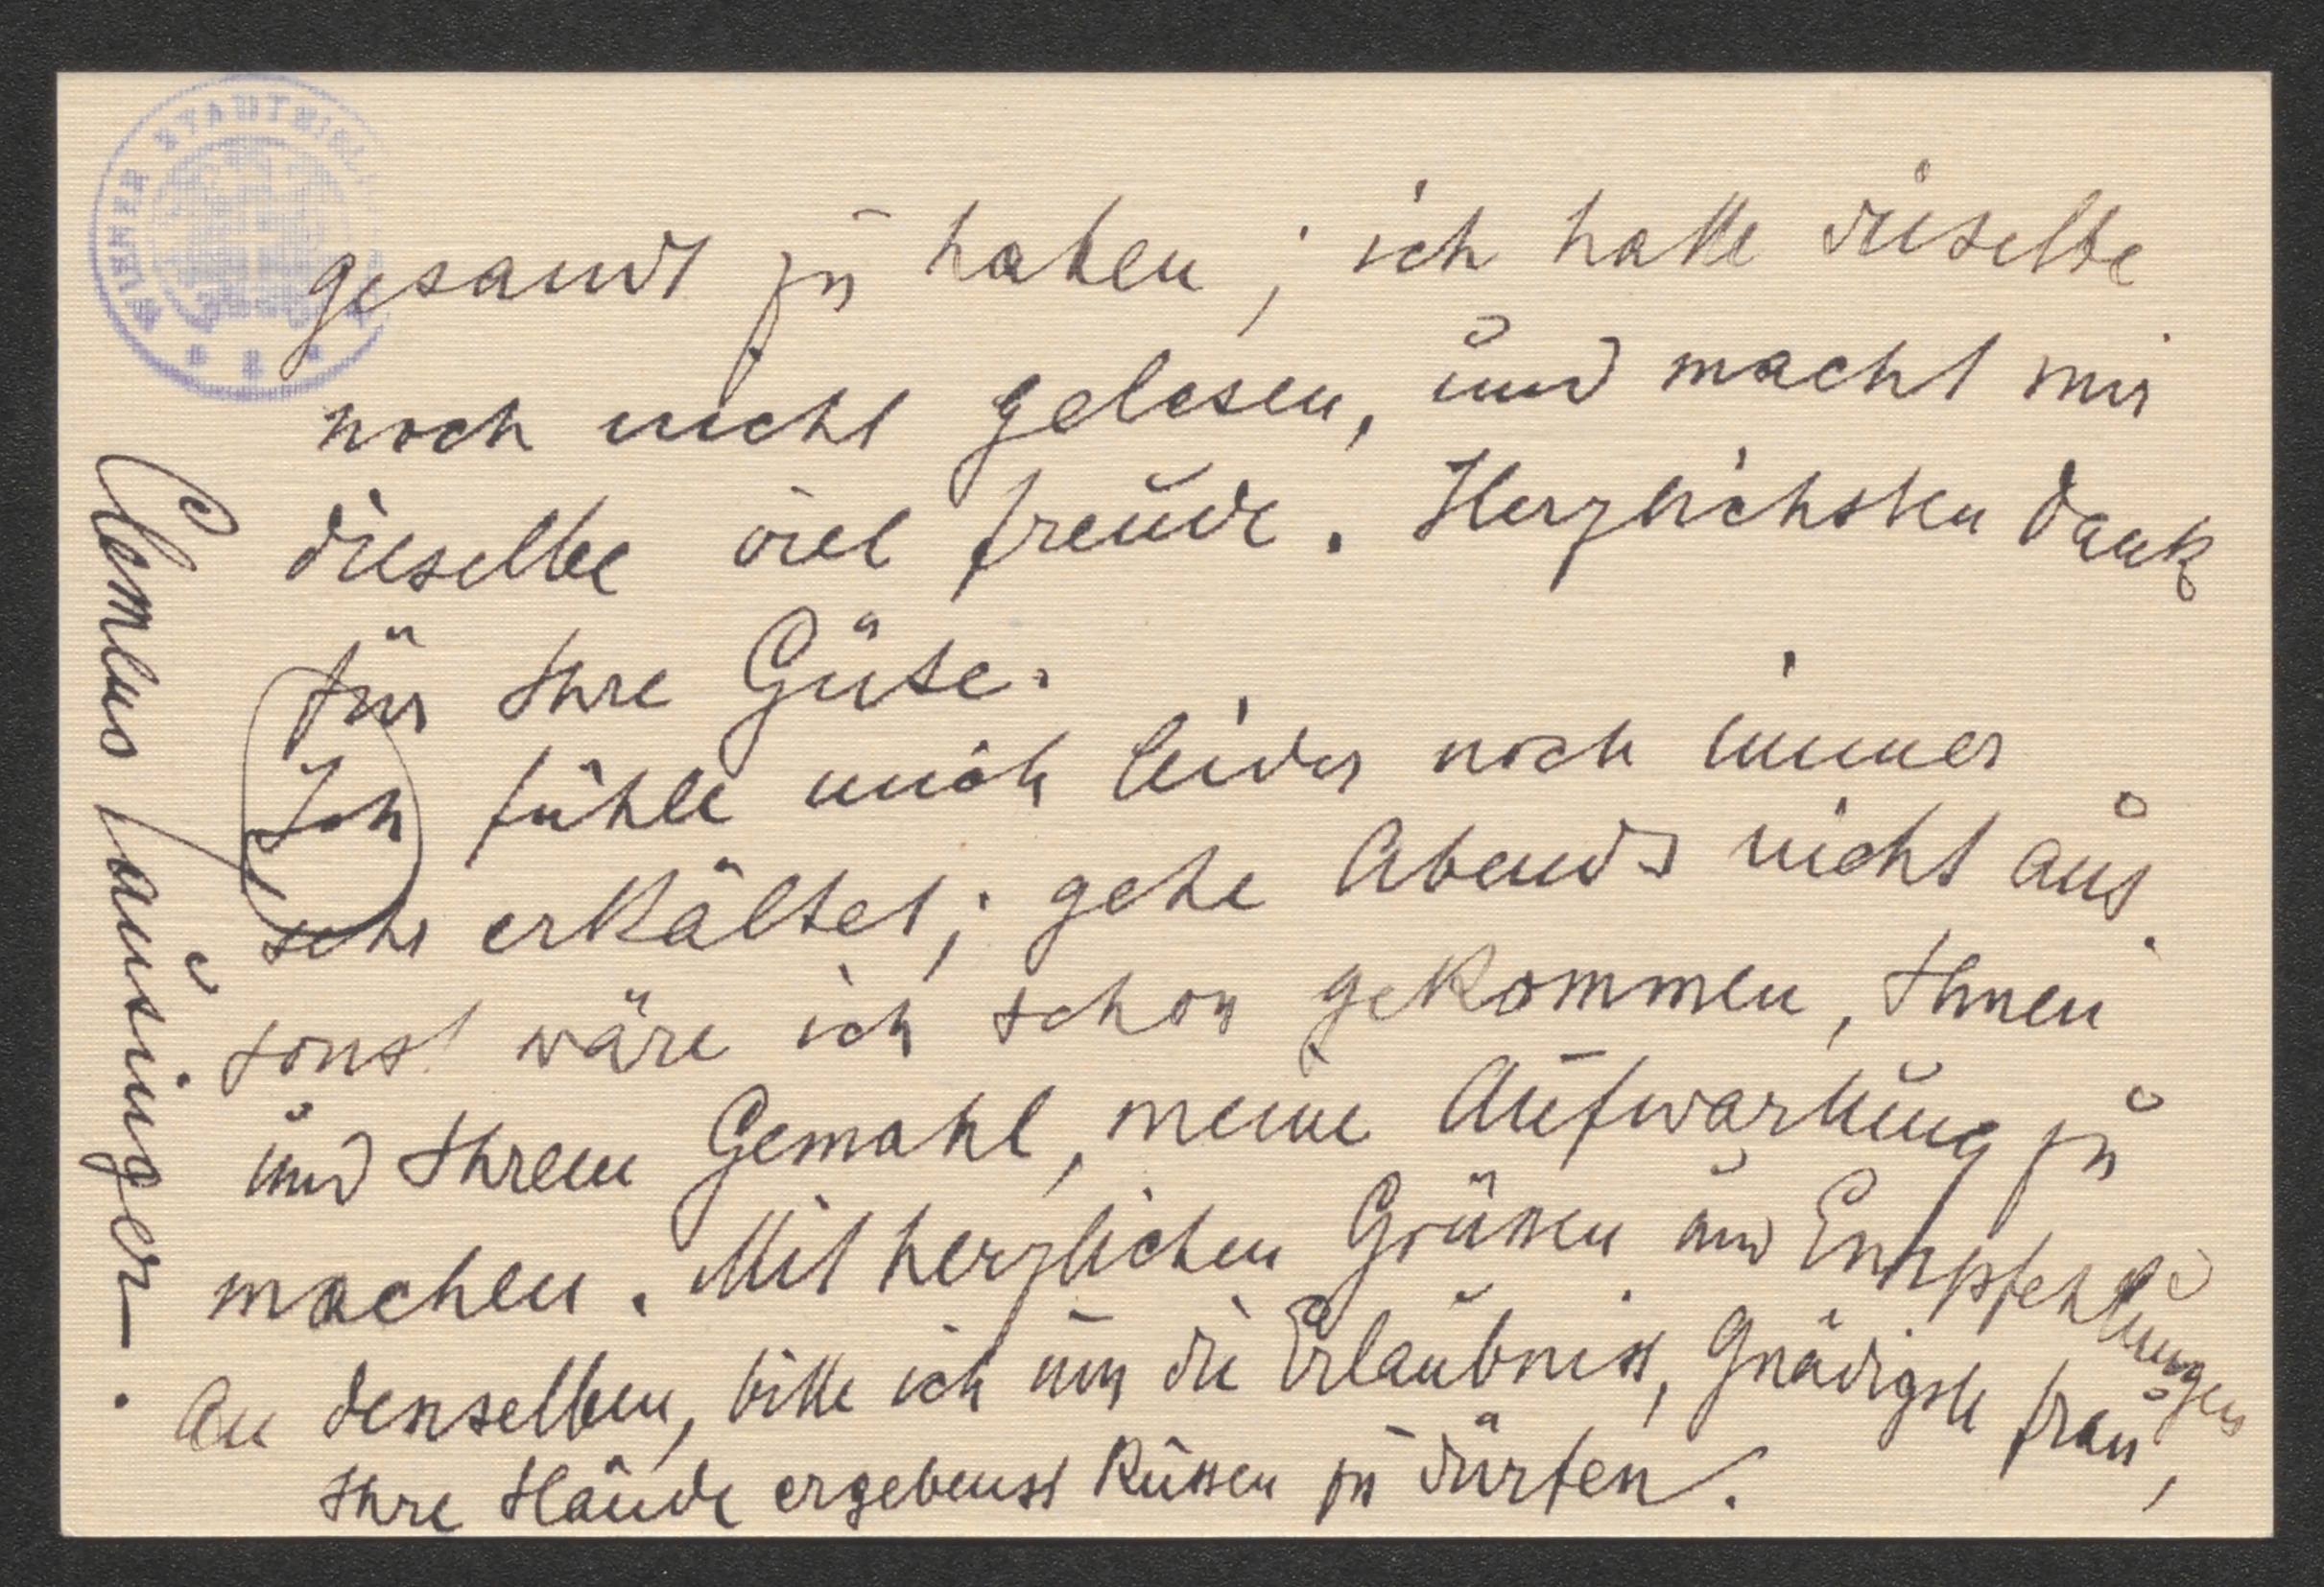 WIENER STADTBIBL
gesandt zu haben; ich hatte dieselbe
noch nicht gelesen, und macht mir
dieselbe viel Freude. Herzlichsten Dank
für Ihre Güte.
Ich fühle mich leider noch immer
sehr erkältet; gehe Abends nicht aus.
sonst wäre ich schon gekommen, Ihnen
und Ihrem Gemahl, meine Aufwartung zu
machen. Mit herzlichen Grüssen und Empfehlungen
an denselben, bitte ich um die Erlaubniss, Gnädigste Frau,
Ihre Hände ergebenst küssen zu dürfen.
Clemens Fausinger.